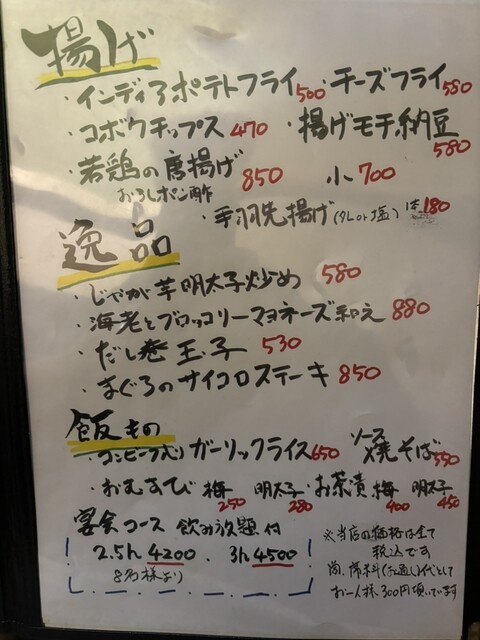 揚げ
・インディアポテトフライ 500 ・チーズフライ 580
・コボウチップス 470 ・揚げモチ納豆 580
・若鶏の唐揚げ 850 小 700
おろしポン酢
・手羽先揚げ(タレor塩) 1本 180
逸品
・じゃが芋明太子炒め 580
・海老とブロッコリーマヨネーズ和え 880
・だし巻玉子 530
・まぐろのサイコロステーキ 850
飯もの
・コンビーフ入りガーリックライス 650 ソース焼そば 550
・おむすび 梅 250 明太子 280 ・お茶漬 梅 400 明太子 450
宴会コース 飲み放題付
2.5h 4200 . 3h 4500
8名様より
※当店の価格は全て
税込です
尚、席料(お通し)代として
お一人様、300円頂いています